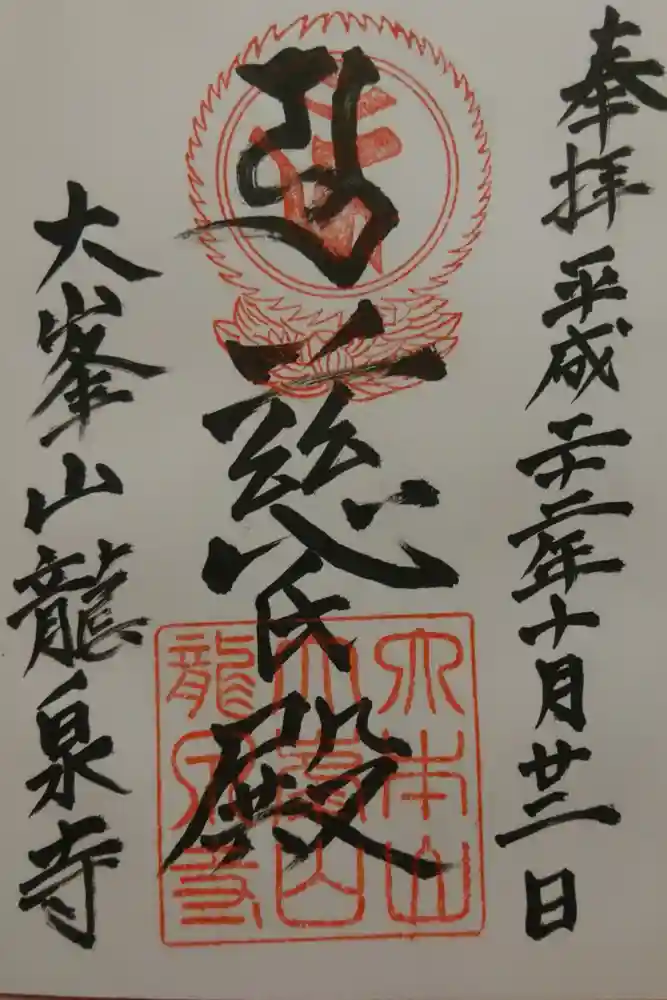 奉拝 平成二十二年十月廿三日
慈氏殿
大峯山龍泉寺
大本山
大峯山
龍泉寺